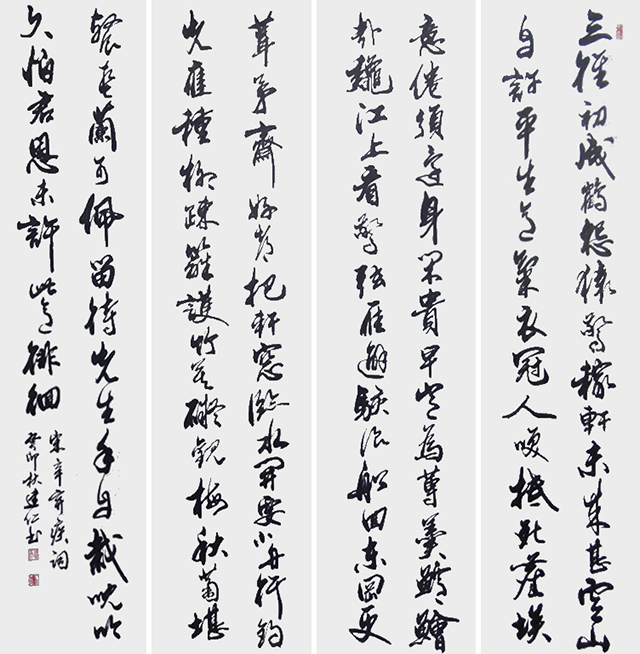 三徑初成鶴怨猿驚稼軒未來甚雲山
自許平生意氣衣冠人笑抵死塵埃
意倦須還身閑貴早豈為蓴羹鱸鱠
哉龝江上看驚弦雁避駭浪船回東岡更
葺茅齋好都把軒窓臨水開要小舟行釣
先應種柳疎籬護竹莫礙觀梅秋菊堪
餐春蘭可佩留待先生手自栽沈吟
久怕君恩未許此意徘徊
宋辛棄疾詞
癸卯秋建仁書